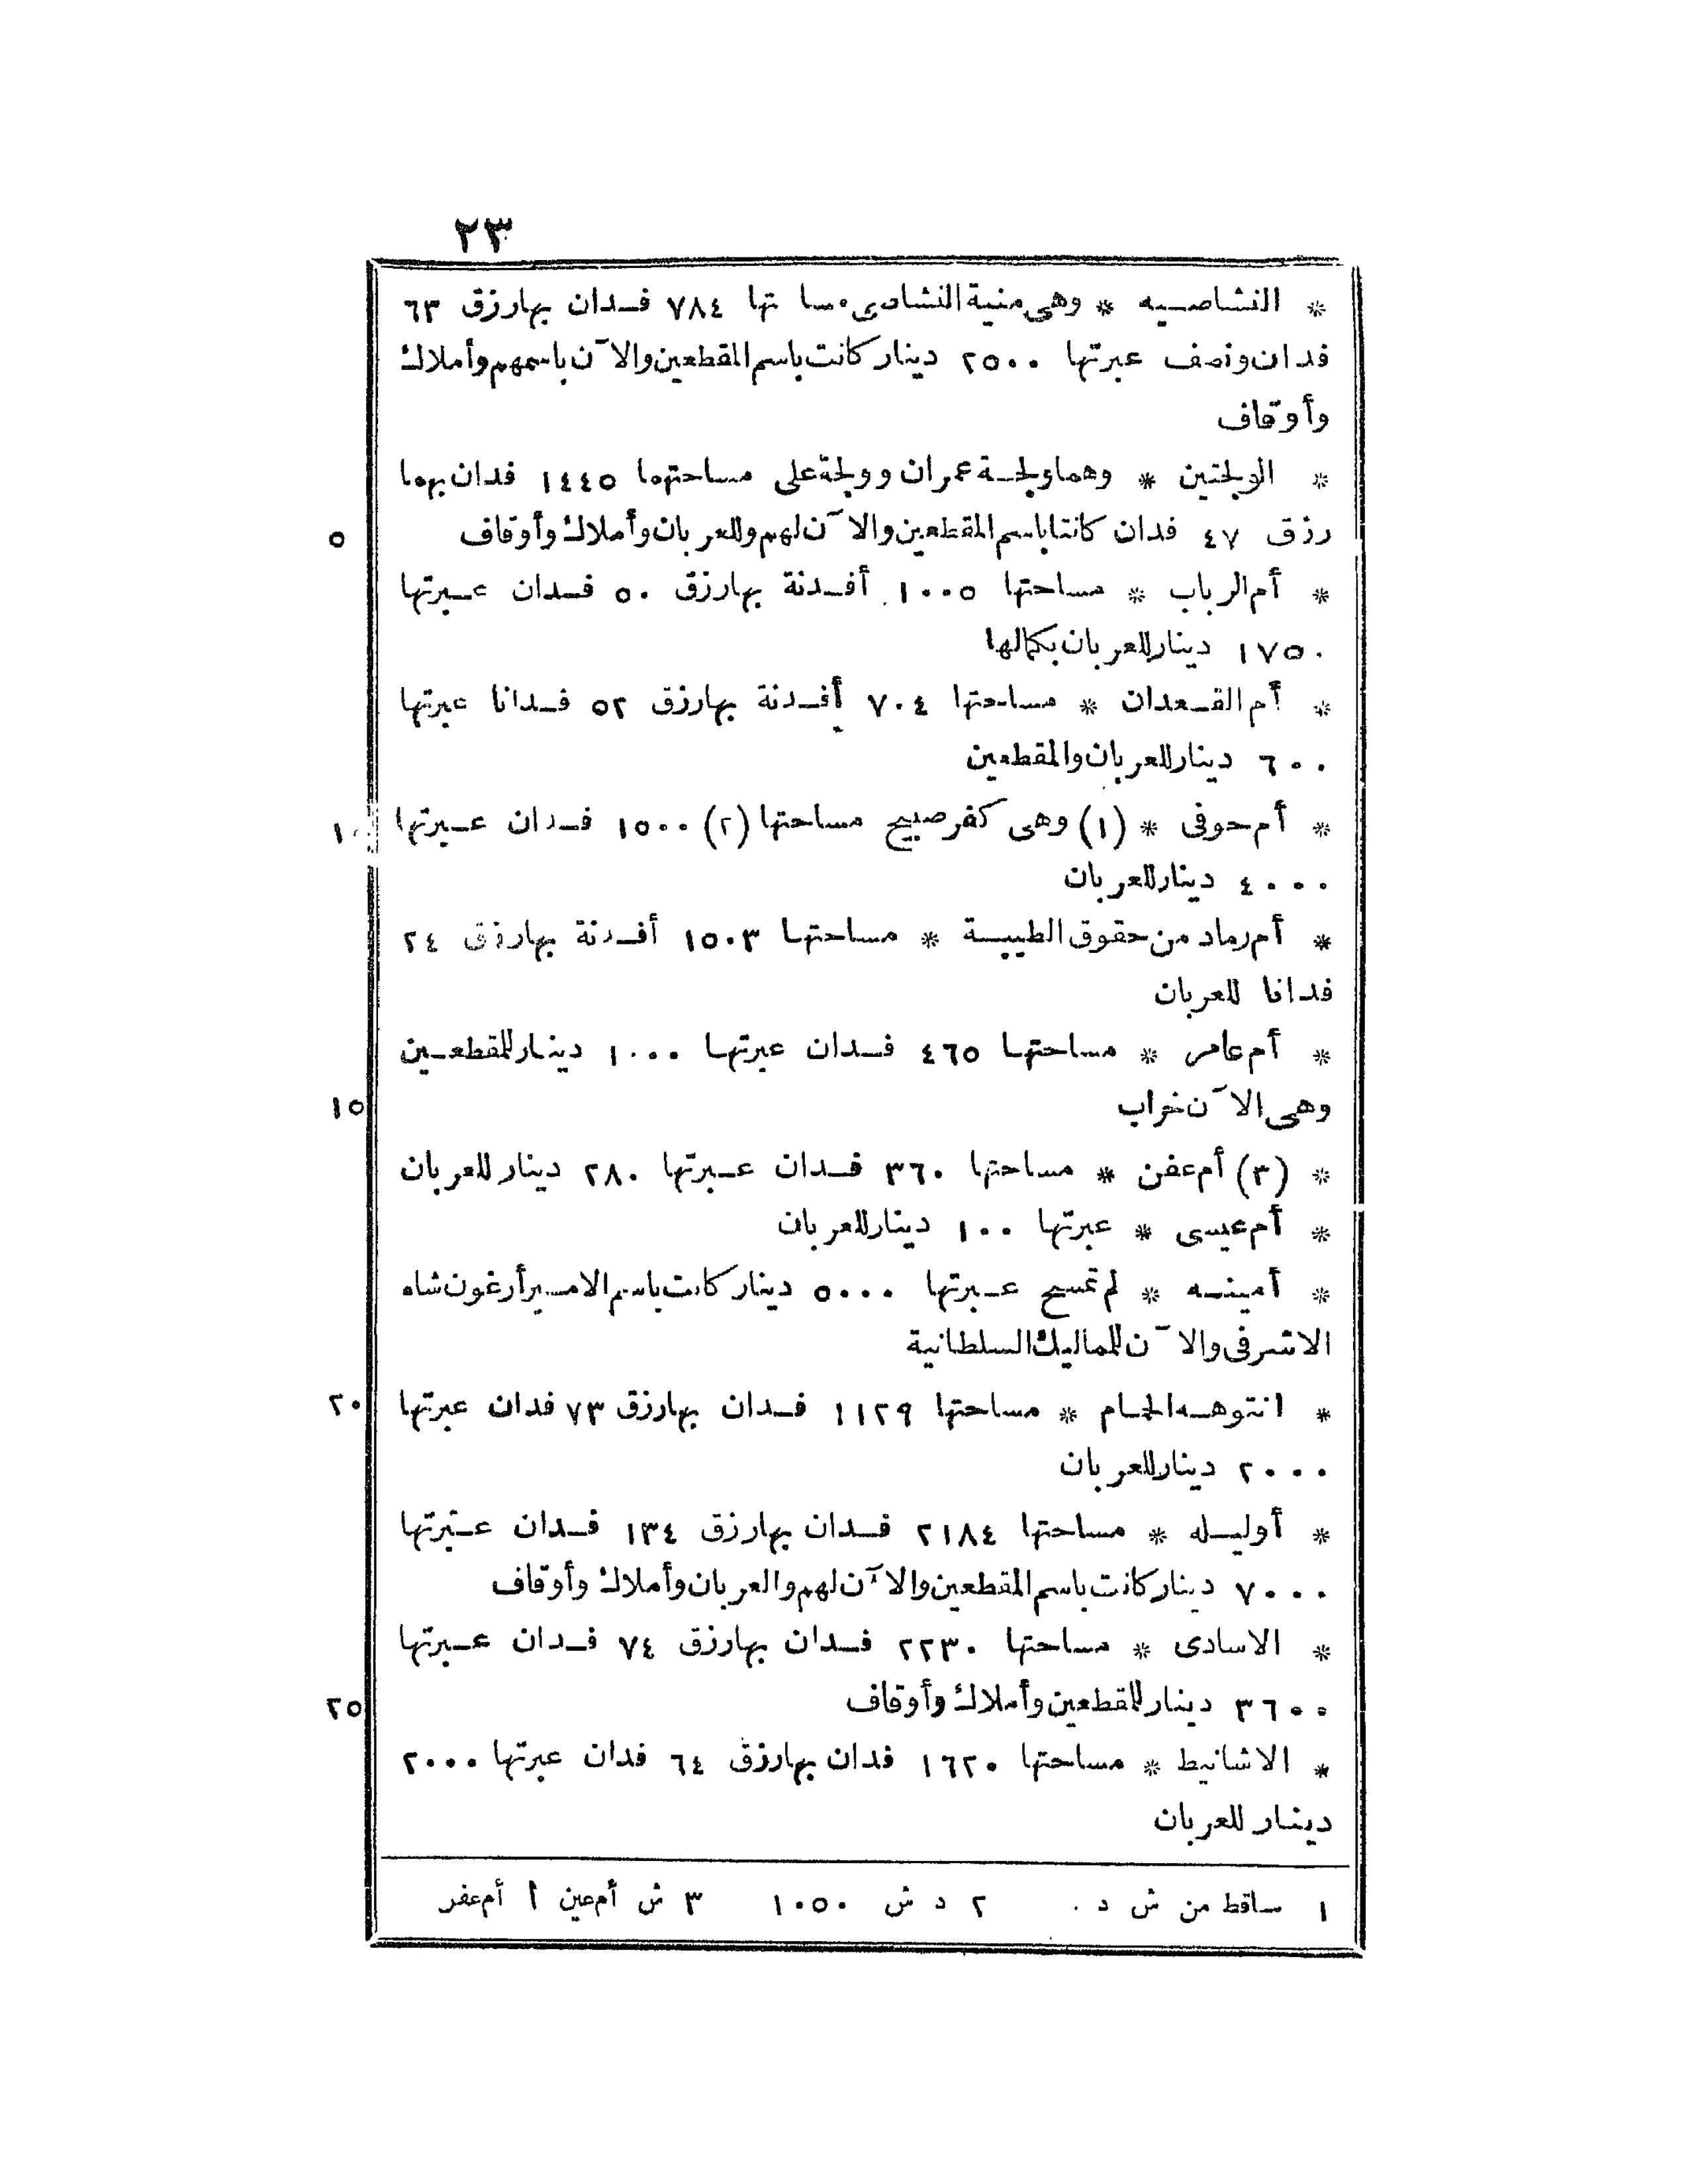 ٢٣
* النشاصيه * وهى منية النشادى مسا تها ٧٨٤ فدان بهارزق ٦٣
فدان ونصف عبرتها ٢٥٠٠ دينار كانت باسم المقطعين والآن باسمهم وأملاك
وأوقاف
* الولجتين * وهما ولجة عمران وولجة على مساحتهما ١٤٤٥ فدان بهما
رزق ٤٧ فدان كانتا باسم المقطعين والآن لهم وللعربان وأملاك وأوقاف
٥
* أم الرباب * مساحتها ١٠٠٥ أفدنة بهارزق ٥٠ فدان عبرتها
١٧٥٠ دينار للعربان بكمالها
* أم القعدان * مساحتها ٧٠٤ أفدنة بهارزق ٥٢ فدانا عبرتها
٦٠٠ دينار للعربان والمقطعين
* أم حوفى * (١) وهى كفر صبيح مساحتها (٢) ١٥٠٠ فدان عبرتها
١٠
٤٠٠٠ دينار للعربان
* أم رماد من حقوق الطيبة * مساحتها ١٥٠٣ أفدنة بهارزق ٢٤
فدانا للعربان
* أم عامر * مساحتها ٤٦٥ فدان عبرتها ١٠٠٠ دينار للمقطعين
وهى الآن خراب
١٥
* (٣) أم عفن * مساحتها ٣٦٠ فدان عبرتها ٢٨٠ دينار للعربان
* أم عيسى * عبرتها ١٠٠ دينار للعربان
* أمينه * لم تمسح عبرتها ٥٠٠٠ دينار كانت باسم الامير أرغون شاه
الاشرفى والآن للماليك السلطانية
* انتوهه الجام * مساحتها ١١٢٩ فدان بهارزق ٧٣ فدان عبرتها
٢٠
٢٠٠٠ دينار للعربان
* أوليله * مساحتها ٢١٨٤ فدان بهارزق ١٣٤ فدان عبرتها
٧٠٠٠ دينار كانت باسم المقطعين والآن لهم والعربان وأملاك وأوقاف
* الاسادى * مساحتها ٢٢٣٠ فدان بهارزق ٧٤ فدان عبرتها
٣٦٠٠ دينار للمقطعين وأملاك وأوقاف
٢٥
* الاشانيط * مساحتها ١٦٢٠ فدان بهارزق ٦٤ فدان عبرتها ٢٠٠٠
دينار للعربان
١ ساقط من ش د . ٢ د ش ١٠٥٠ ٣ ش أم عين أ أم عفر